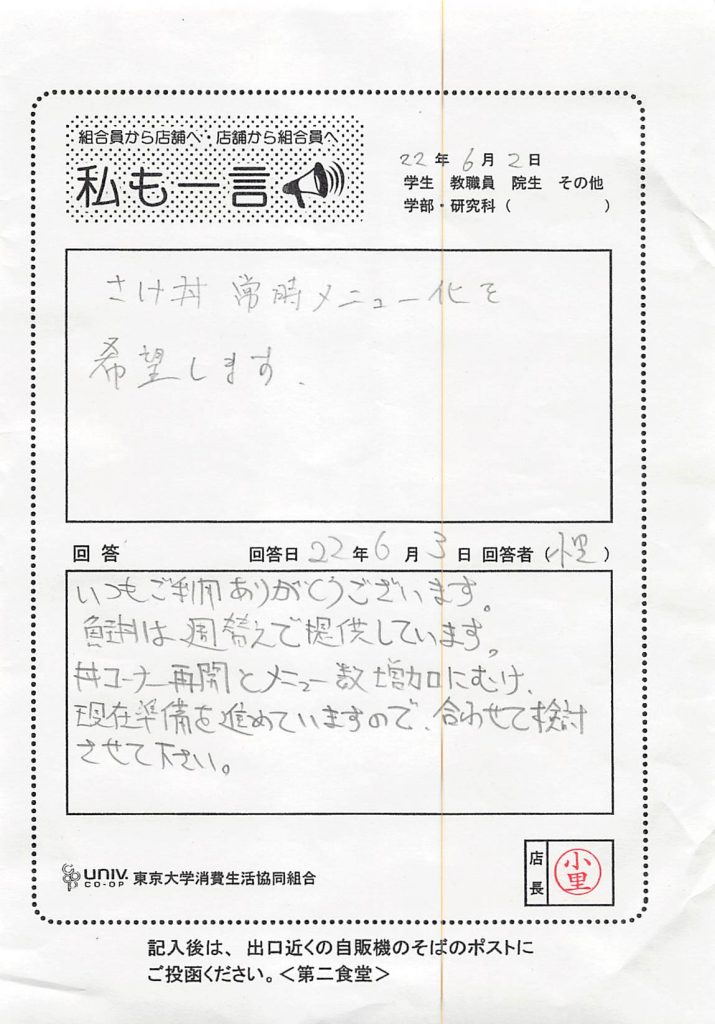 組合員から店舗へ・店舗から組合員へ
私も一言
22年6月2日
学生 教職員 院生 その他
学部・研究科( )
さけ丼 常時メニュー化を
希望します.
回答 回答日 22年6月3日 回答者(小里)
いつもご利用ありがとうございます。
魚丼は週替えで提供しています。
丼コーナー再開とメニュー数増加にむけ、
現在準備を進めていますので、合わせて検討
させて下さい。
店長
小里
CO-OP UNIV. CO-OP 東京大学消費生活協同組合
記入後は、出口近くの自販機のそばのポストに
ご投函ください。<第二食堂>